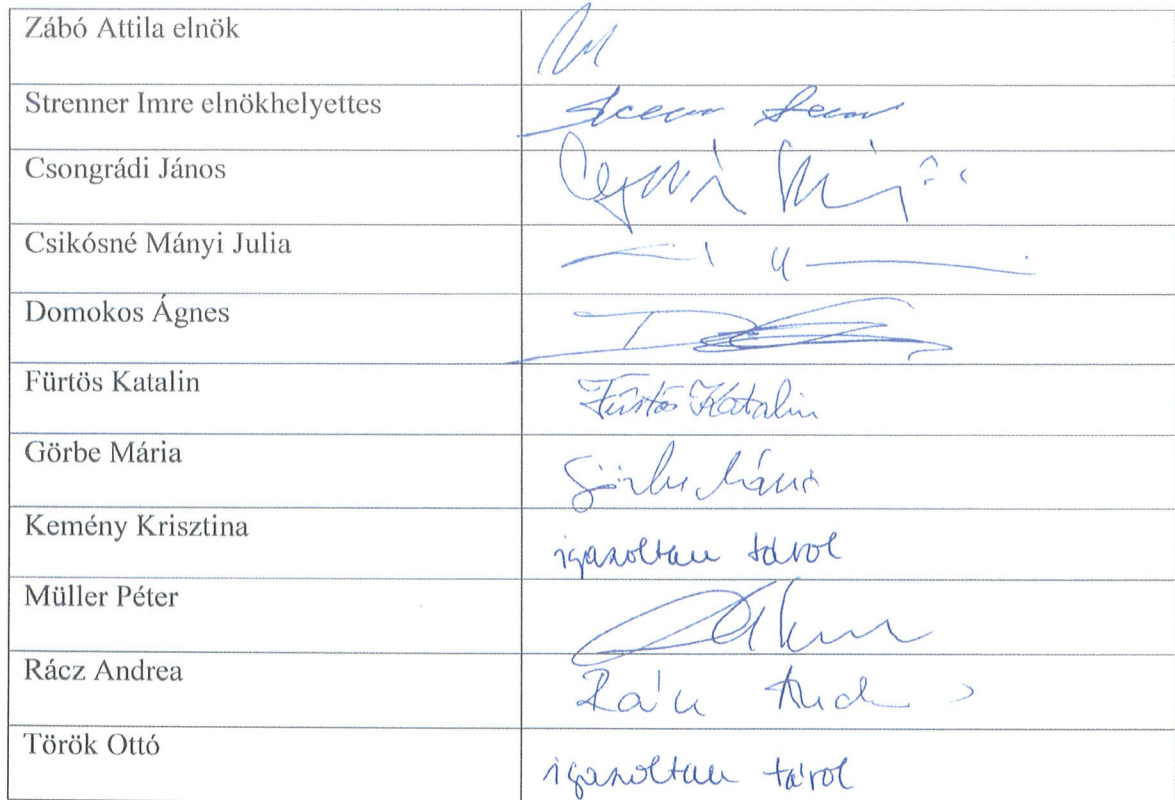 Zábó Attila elnök
Strenner Imre elnökhelyettes
Csongrádi János
Csikósné Mányi Julia
Domokos Ágnes
Fürtös Katalin
Fürtös Katalin
Görbe Mária
Görbe Mária
Kemény Krisztina
igazoltan távol
Müller Péter
Rácz Andrea
Török Ottó
igazoltan távol